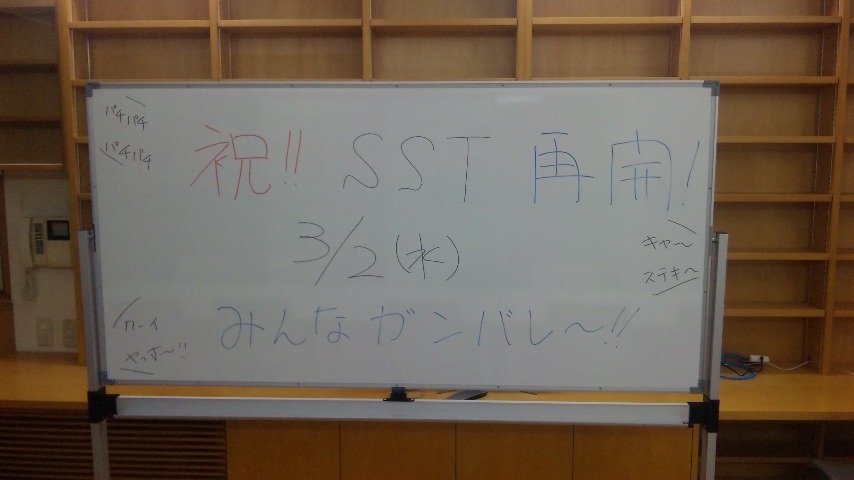 パチパチ
パチパチ
祝!! SST 再開!
3/2(水)
キャ〜
ステキ〜
みんなガンバレ〜!!
ワーイ
やっホ〜!!